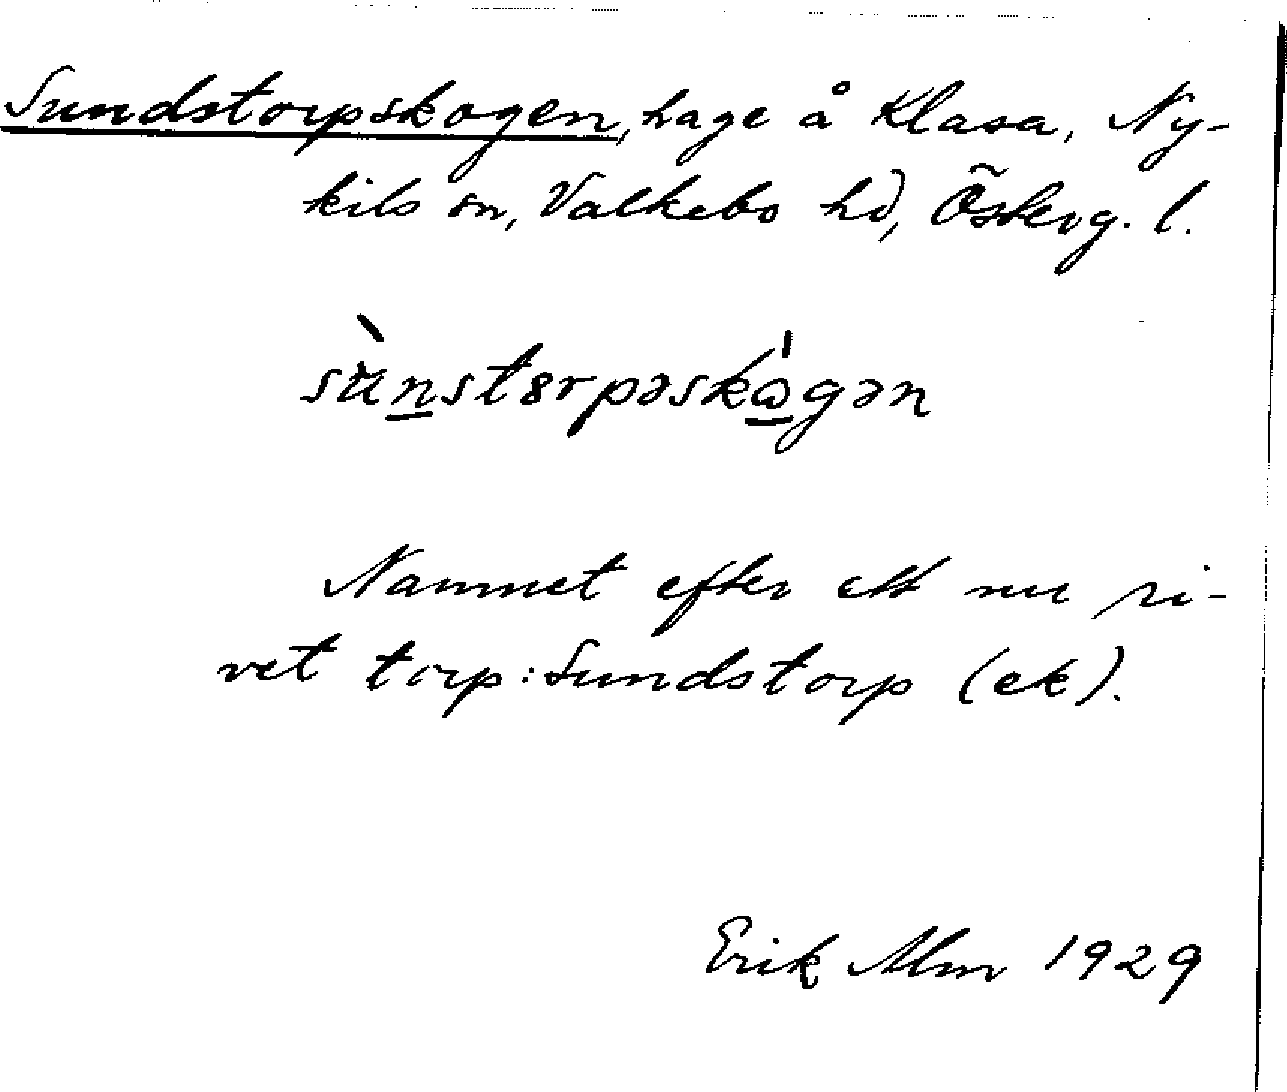 Sundstorpskogen, hage å Klasa, Ny-
kils sn, Valkebo hd, Österg. l.
sùnstɵrpəskɷ̀gən
Namnet efter ett nu ri-
vet torp: Sundstorp (ek).
Erik Alm 1929